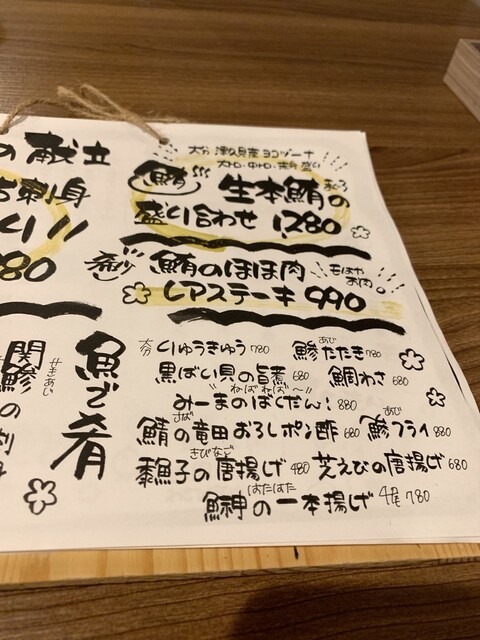 の献立
刺身
380
大分 津久見産 ヨコヅーナ
大トロ・中トロ・赤身盛り
鮪 生本鮪の
まぐろ
盛り合わせ 1,280
鮪のほほ肉
もはや
お肉。
レアステーキ 990
魚で肴
大分 りゅうきゅう 780
あじ
鯵たたき 780
黒ばい貝の旨煮 680
鯛わさ 680
"ねばねば〜"
みーまのばくだん! 880
さば
鯖の竜田おろしポン酢 680
あじ
鯵フライ 880
きびなご
黍魚子の唐揚げ 480
芝えびの唐揚げ 680
はたはた
鰰の一本揚げ 4尾 780
せきあじ
関鯵
の刺